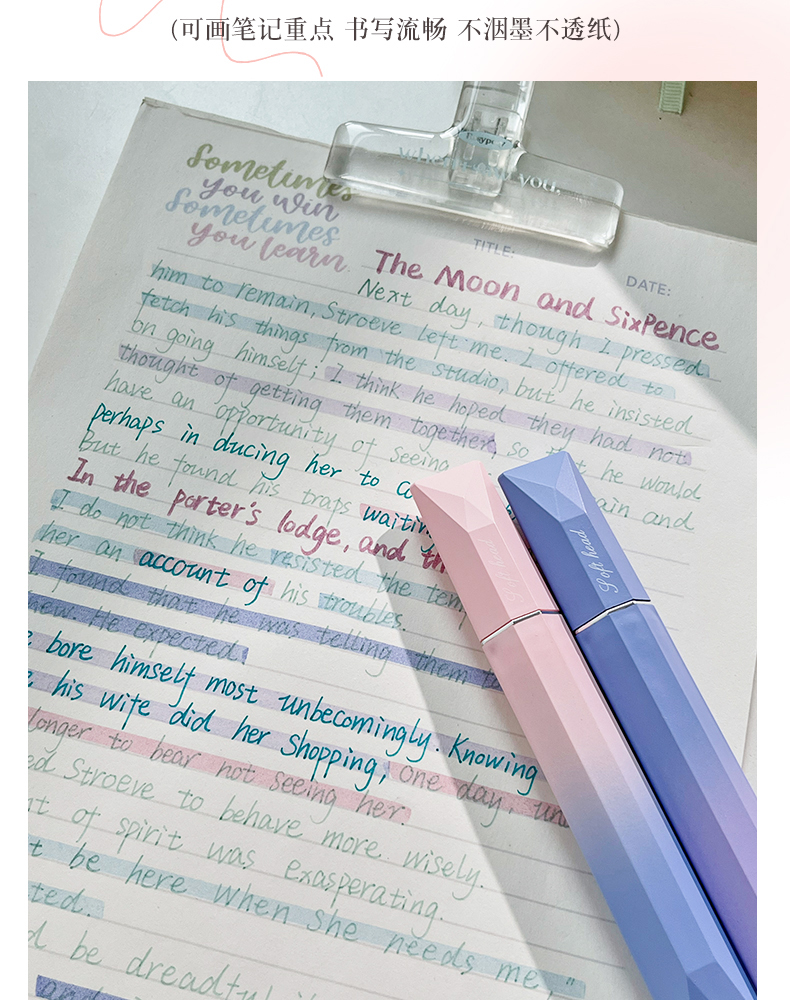 (可画笔记重点 书写流畅 不洇墨不透纸)
Sometimes
you win
Sometimes
you learn
you.
TITLE:
DATE:
The Moon and SixPence
Next day, though I pressed
him to remain, Stroeve left me. I offered to
fetch his things from the studio, but he insisted
on going himself; I think he hoped they had not
thought of getting them together, so that he would
have an opportunity of seeing again and
perhaps in ducing her to
But he found his traps waiting
In the porter's lodge, and
I do not think he resisted the
her an account of his troubles.
I found that he was telling them
new. He expected.
bore himself most unbecomingly. Knowing
his wife did her shopping, One day,
longer to bear not seeing her.
Stroeve to behave more wisely.
of spirit was exasperating.
be here when she needs me,"
ted.
be
Soft head
Soft head